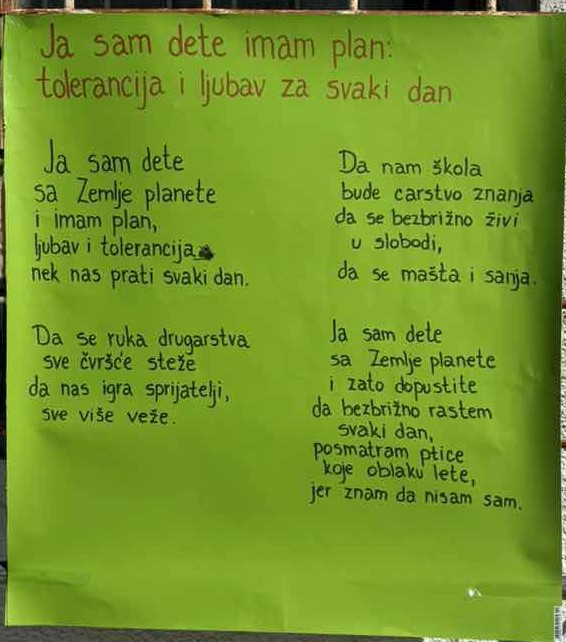 Ja sam dete imam plan:
tolerancija i ljubav za svaki dan
Ja sam dete
sa Zemlje planete
i imam plan,
ljubav i tolerancija
nek nas prati svaki dan.
Da se ruka drugarstva
sve čvršće steže
da nas igra sprijatelji,
sve više veže.
Da nam škola
bude carstvo znanja
da se bezbrižno živi
u slobodi,
da se mašta i sanja.
Ja sam dete
sa Zemlje planete
i zato dopustite
da bezbrižno rastem
svaki dan,
posmatram ptice
koje oblaku lete,
jer znam da nisam sam.